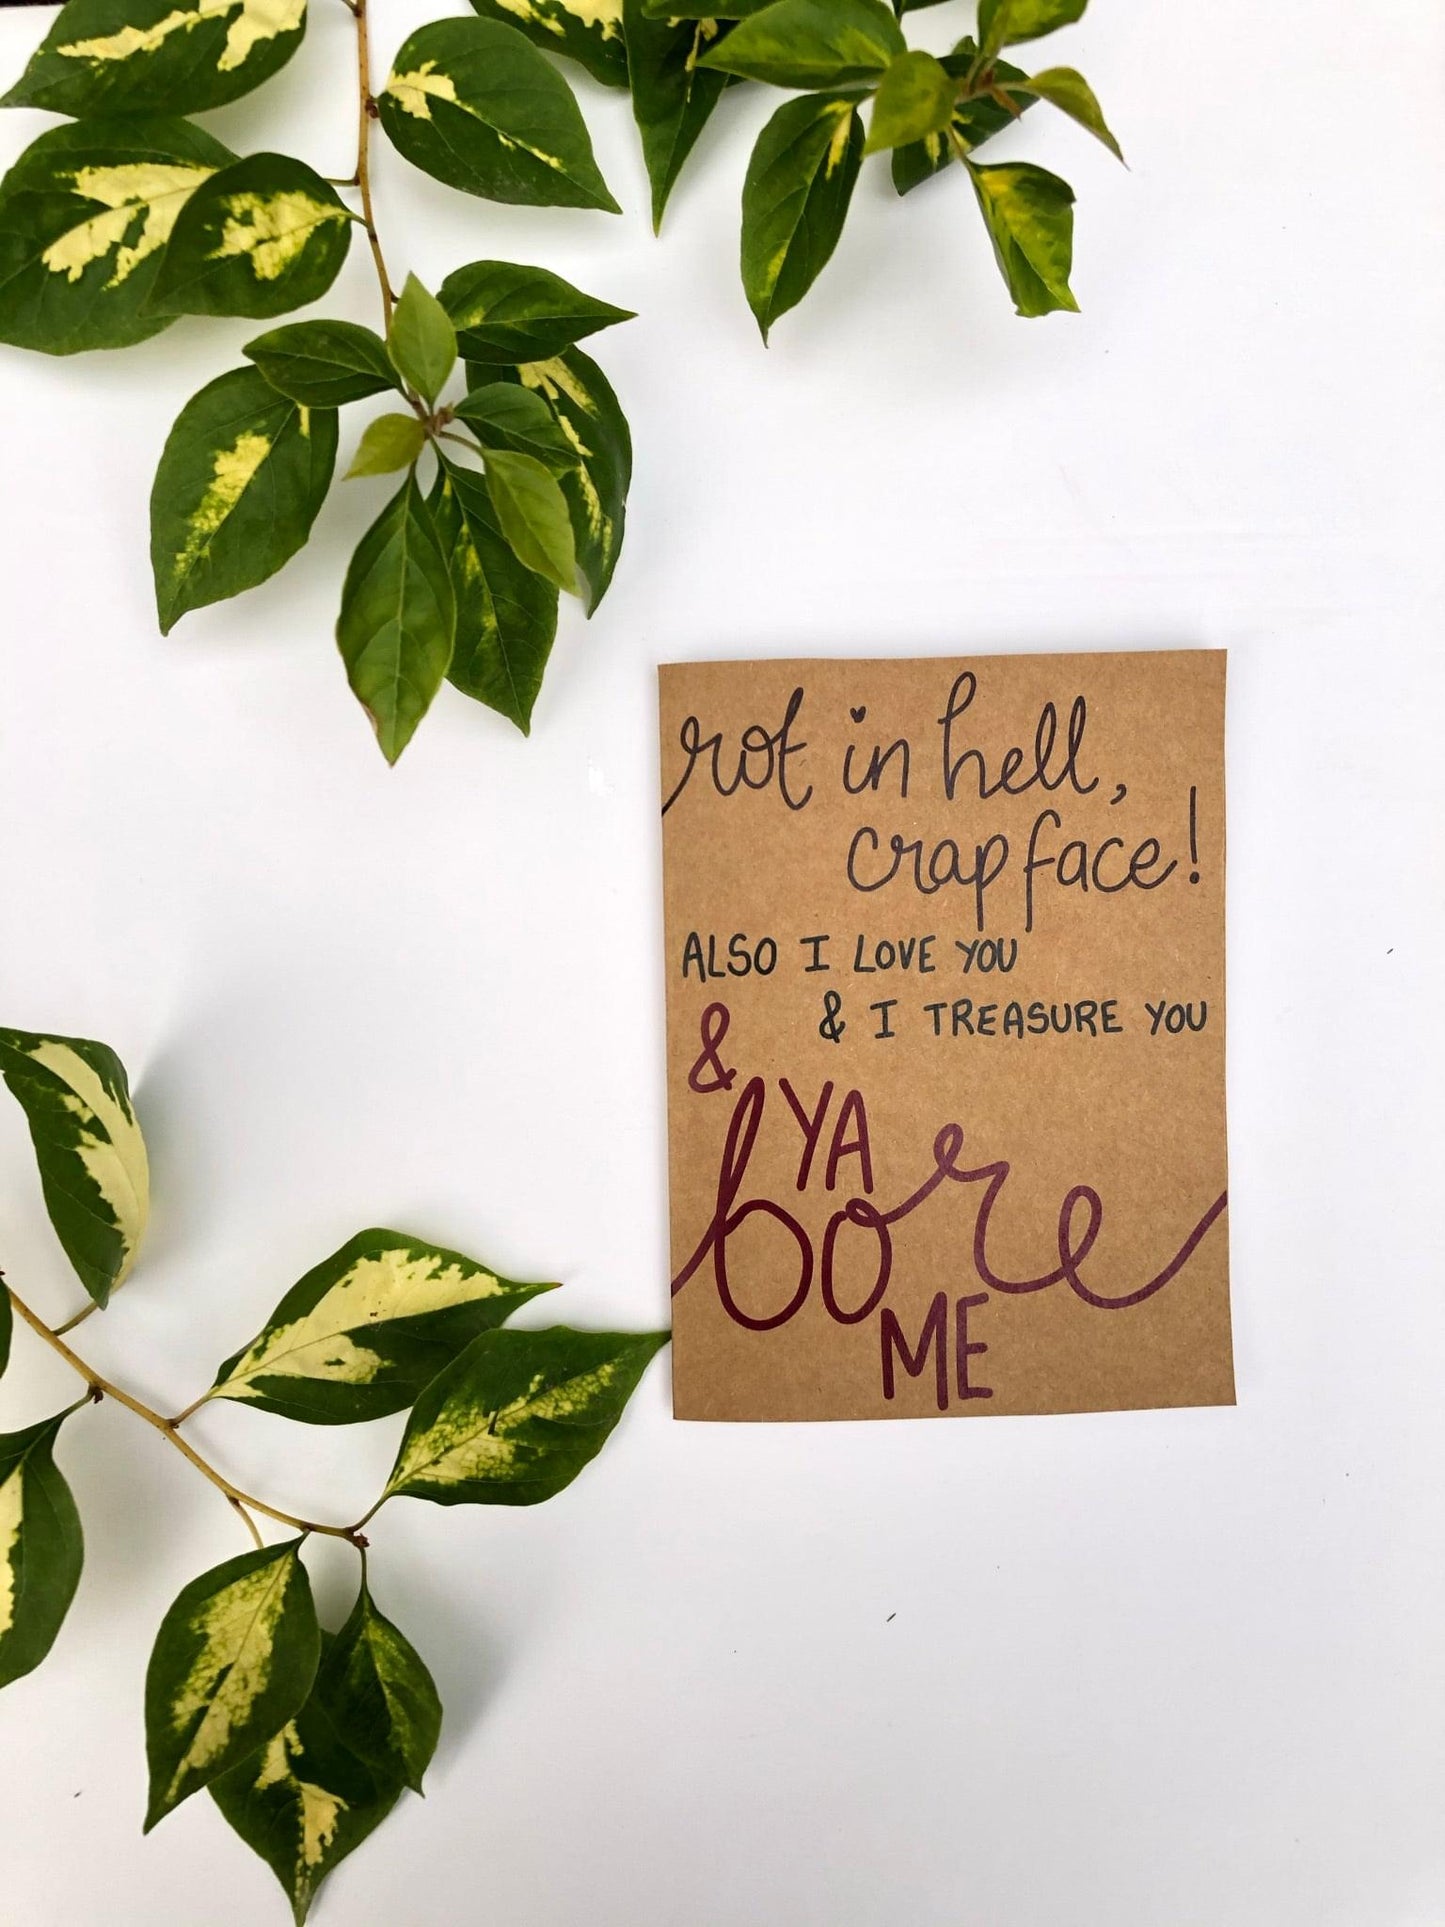 rot in hell,
crap face!
ALSO I LOVE YOU
& I TREASURE YOU
&
YA
bore
ME